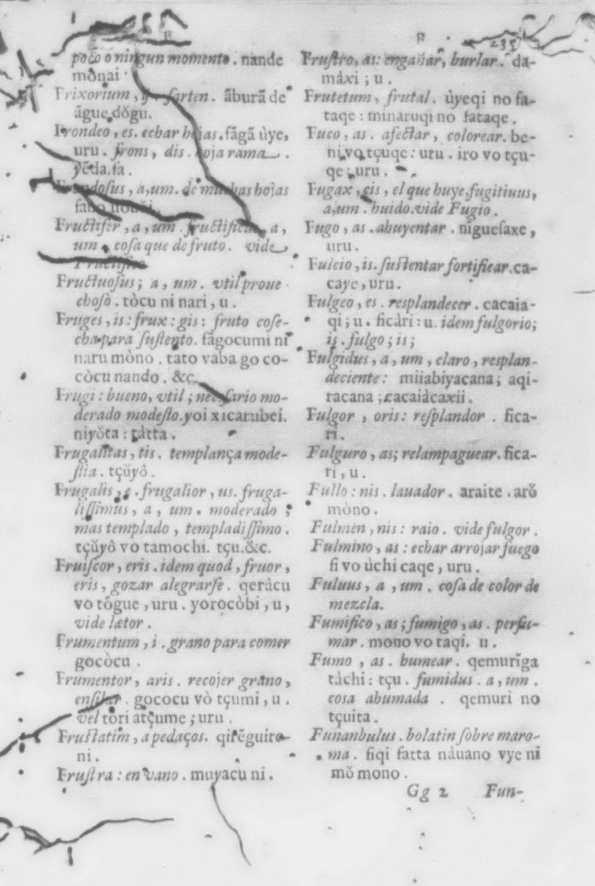 R
poco o ningun momento. nande
mŏnai
Frixorium, ij. sarten. ābura de
āgue dŏgu.
Frondeo, es. echar hojas. fāgā ùye,
uru. frons, dis. hoja rama.
yĕda. fa.
Frondosus, a, um. de muchas hojas
Fructifer, a, um. fructificus, a,
um. cosa que de fruto. vide
Fructifico
Fructuosus; a, um. vtil proue
choso. tòcu ni nari, u.
Fruges, is: frux: gis: fruto cose-
cha para sustento. fāgocumi ni
naru mòno. tato vaba go co-
còcu nando. &c.
Frugi: bueno, vtil; necesario mo-
derado modesto. yoi xicarubei.
niyŏta: tàtta.
Frugalitas, tis. templança mode-
stia. tçŭyŏ.
Frugalis, e. frugalior, us. fruga-
lissimus, a, um. moderado;
mas templado, templadissimo.
tçŭyŏ vo tamochi. tçu. &c.
Fruiscor, eris. idem quod, fruor,
eris, gozar alegrarse. qeràcu
vo tŏgue, uru. yorocòbi, u,
vide lætor.
Frumentum, i. grano para comer
gocòcu.
Frumentor, aris. recojer grano,
ensilar. gococu vò tçumi, u.
vel tori atçume; uru.
Frustatim, a pedaços. qirēguire
ni.
Frustra: en vano. muyacu ni.
R
235
Frustro, as: engañar, burlar. da-
màxi; u.
Frutetum, frutal. ùyeqi no fa-
taqe: minaruqi no fataqe.
Fuco, as. afectar, colorear. be-
ni vo tçuqe: uru. iro vo tçu-
qe; uru.
Fugax, cis, el que huye, fugitiuus,
a, um. huido. vide Fugio.
Fugo, as. ahuyentar. niguesaxe,
uru.
Fulcio, is. sustentar fortificar. ca-
caye, uru.
Fulgeo, es. resplandecer. cacaia-
qi; u. ficàri: u. idem fulgorio;
is. fulgo; is;
Fulgidus, a, um, claro, resplan-
deciente: miiabiyacana; aqi-
racana; cacaiàcaxii.
Fulgor, oris: resplandor. fica-
ri.
Fulguro, as; relampaguear. fica-
ri, u.
Fullo: nis. lauador. araite. arŏ
mòno.
Fulmen, nis: raio. vide fulgor.
Fulmino, as: echar arrojar fuego
fi vo ùchi caqe, uru.
Fuluus, a, um. cosa de color de
mezcla.
Fumifico, as; fumigo, as. perfu-
mar. mono vo taqi. u.
Fumo, as. humear. qemurīga
tàchi: tçu. fumidus. a, um.
cosa ahumada. qemuri no
tçuita.
Funanbulus. bolatin sobre maro-
ma. fiqi fatta nàuano vye ni
mŏ mono.
Gg 2 Fun-